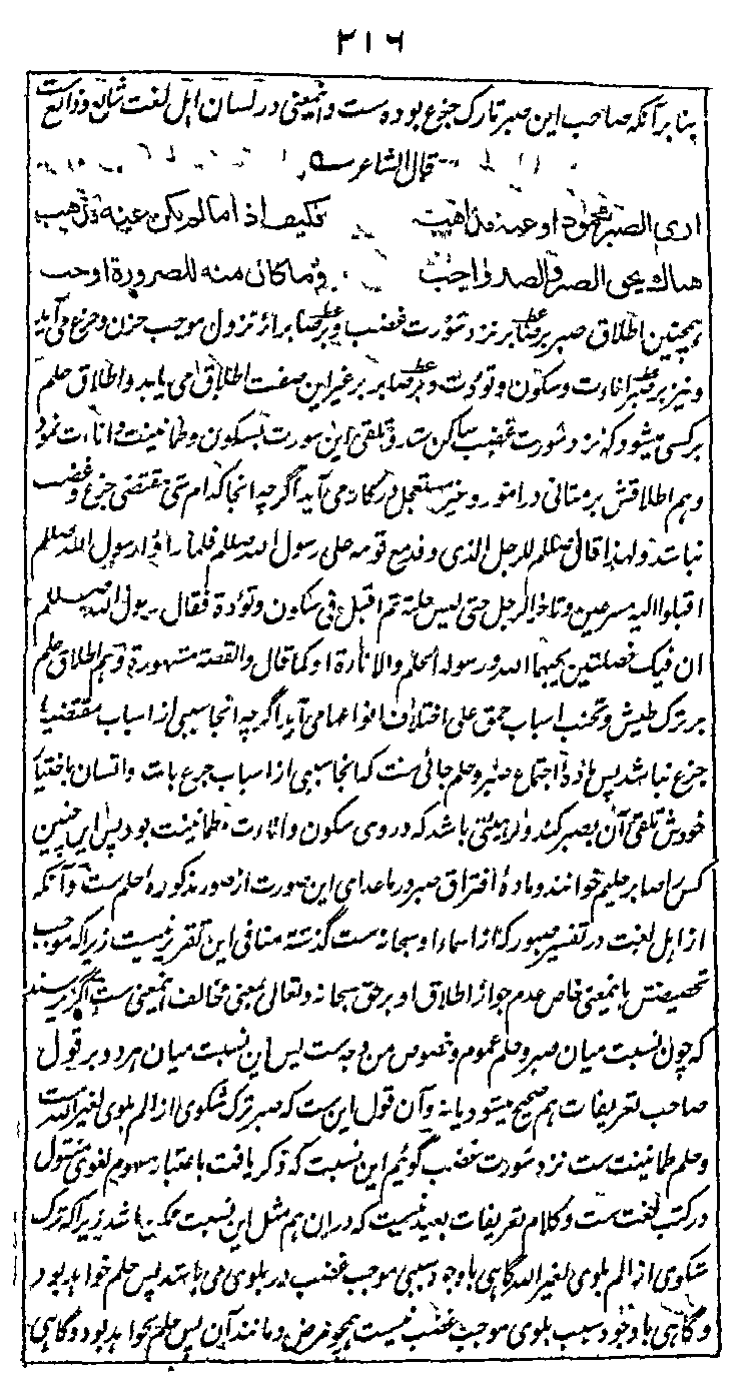 ٢١٦
بنا بر آنکه صاحب این صبر تارک جزع بوده است و اینمعنی در لسان اهل لغت شائع و ذائع است
قال الشاعر
اری الصبر محمودا وعنه مذاهب فکیف اذا مالم یکن عنه مذهب
هناک یحق الصبر والصبر واجب وما کان منه للضرورة اوجب
و همچنین اطلاق صبر بر صابر نزد سورت غضب و بر صابر از نزول موجب حزن و جزع می آید
و نیز بر صبر انارت و سکون و تؤدت و بر صابر بر غیر این صفت اطلاق می یابد و اطلاق حلم
بر کسی میشود که نزد سورت غضب ساکن ست و تلقی این سورت بسکون و طمانینت و انارت نمود
و هم اطلاقش بر متانی در امور و غیر مستعجل در کار می آید اگرچه انجا کدام شی مقتضی جزع و غضب
نباشد و لهذا قال صلعم للرجل الذی وفد مع قومه علی رسول الله صلعم فلما راؤا رسول الله صلعم
اقبلوا الیه مسرعین وتاخر الرجل حتی لبس حلته ثم اقبل فی سکون وتؤدة فقال رسول الله صلعم
ان فیک خصلتین یحبهما الله ورسوله الحلم والاناءة او کما قال والقصة مشهورة و هم اطلاق حلم
بر ترک طیش و تجنب اسباب حمق علی اختلاف انواعها می آید اگرچه انجا سببی از اسباب مقتضیه
جزع نباشد پس مادهٔ اجتماع صبر و حلم جائی ست که انجا سببی از اسباب جزع باشد و انسان باختیار
خودش تلقی آن بصبر کند و بر هیئتی باشد که در وی سکون و انارت و طمانینت بود پس این چنین
کس را صابر حلیم خوانند و مادهٔ افتراق صبور ماعدای این صورت از صور مذکورهٔ حلم ست و آنکه
از اهل لغت در تفسیر صبور که از اسماء او سبحانه ست گذشته منافی این تقریر نیست زیرا که موجب
تخصیصش باینمعنی خاص عدم جواز اطلاق او بر حق سبحانه و تعالی بمعنی مخالف اینمعنی ست و اگر پرسند
که چون نسبت میان صبر و حلم عموم و خصوص من وجه ست پس این نسبت میان هر دو بر قول
صاحب تعریفات هم صحیح میشود یا نه و آن قول این ست که صبر ترک شکوی از الم بلوی لغیر الله ست
و حلم طمانینت ست نزد سورت غضب گوئیم این نسبت که ذکر یافت باعتبار مفهوم لغوی منقول
در کتب لغت ست و کلام تعریفات بعید نیست که دران هم مثل این نسبت ممکن باشد زیرا که ترک
شکوی از الم بلوی لغیر الله گاهی با وجود سببی موجب غضب در بلوی می باشد پس حلم خواهد بود
و گاهی با وجود سبب بلوی موجب غضب نیست همچو مرض و مانند آن پس حلم نخواهد بود و گاهی